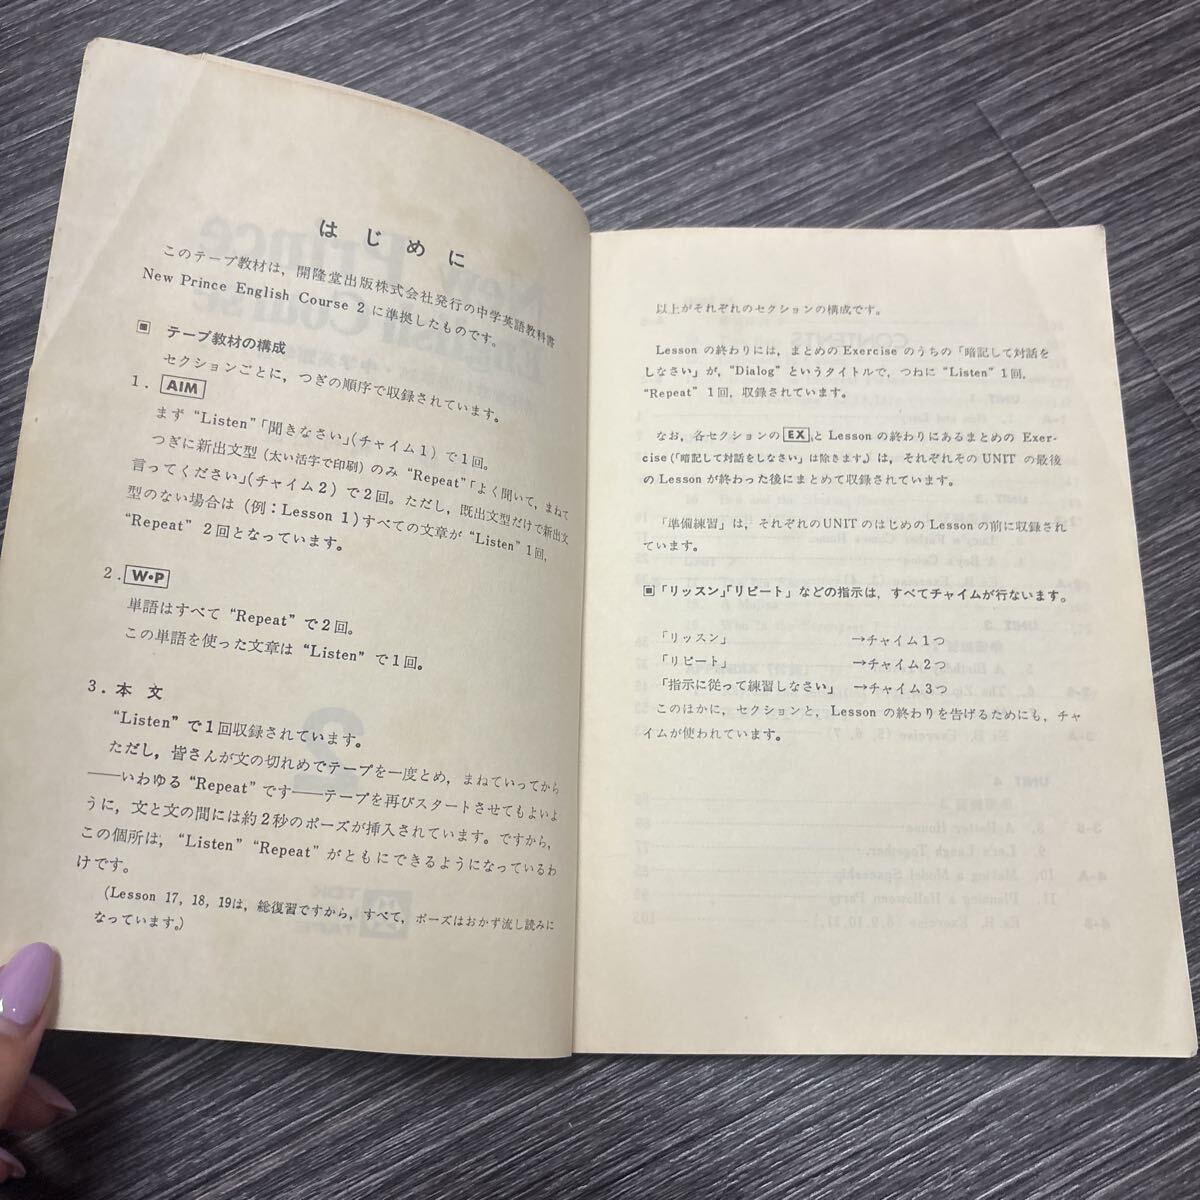 はじめに
このテープ教材は，開隆堂出版株式会社発行の中学英語教科書
New Prince English Course 2 に準拠したものです。
▣ テープ教材の構成
セクションごとに，つぎの順序で収録されています。
1．AIM
まず “Listen”「聞きなさい」（チャイム1）で1回。
つぎに新出文型（太い活字で印刷）のみ “Repeat”「よく聞いて，まねて
言ってください」（チャイム2）で2回。ただし，既出文型だけで新出文
型のない場合は（例：Lesson 1）すべての文章が “Listen” 1回，
“Repeat” 2回となっています。
2．W・P
単語はすべて “Repeat” で2回。
この単語を使った文章は “Listen” で1回。
3．本文
“Listen” で1回収録されています。
ただし，皆さんが文の切れめでテープを一度とめ，まねていってから
――いわゆる “Repeat” です――テープを再びスタートさせてもよいよ
うに，文と文の間には約2秒のポーズが挿入されています。ですから，
この個所は，“Listen” “Repeat” がともにできるようになっているわ
けです。
（Lesson 17, 18, 19は，総復習ですから，すべて，ポーズはおかず流し読みに
なっています。）
以上がそれぞれのセクションの構成です。
Lesson の終わりには，まとめの Exercise のうちの「暗記して対話を
しなさい」が，“Dialog” というタイトルで，つねに “Listen” 1回，
“Repeat” 1回，収録されています。
なお，各セクションの EX と Lesson の終わりにあるまとめの Exer-
cise（「暗記して対話をしなさい」は除きます。）は，それぞれその UNIT の最後
の Lesson が終わった後にまとめて収録されています。
「準備練習」は，それぞれのUNIT のはじめの Lesson の前に収録され
ています。
▣「リッスン」「リピート」などの指示は，すべてチャイムが行ないます。
「リッスン」 →チャイム1つ
「リピート」 →チャイム2つ
「指示に従って練習しなさい」 →チャイム3つ
このほかに，セクションと，Lesson の終わりを告げるためにも，チャ
イムが使われています。